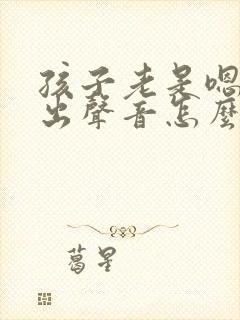 孩子老是嗯
出聲音怎麼
葛星